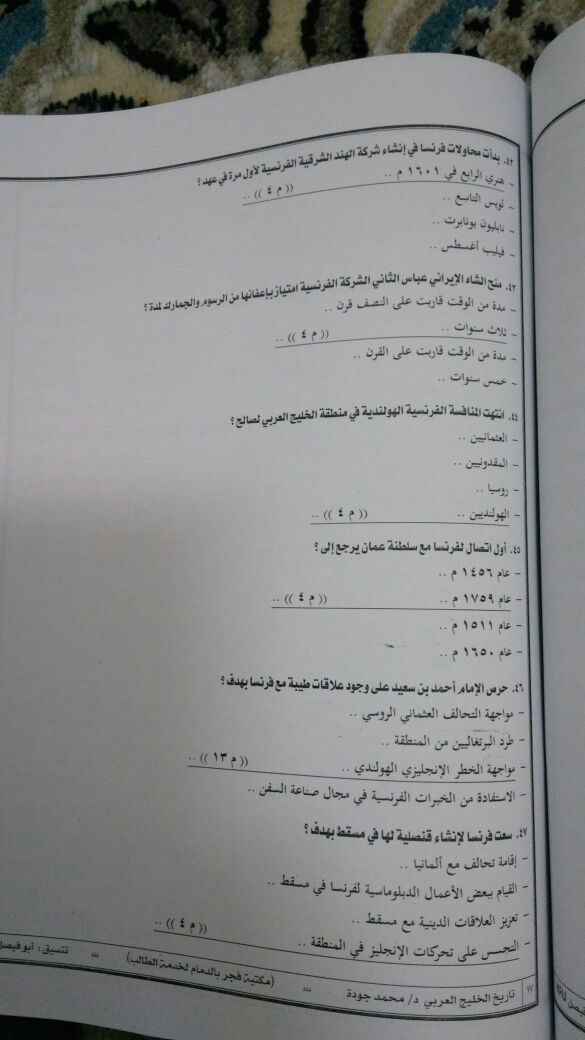 ٤٢. بدأت محاولات فرنسا في إنشاء شركة الهند الشرقية الفرنسية لأول مرة في عهد ؟
- هنري الرابع في ١٦٠١ م .. (( م ٤ )) ..
- لويس التاسع ..
- نابليون بونابرت ..
- فيليب أغسطس ..
٤٣. منح الشاه الإيراني عباس الثاني الشركة الفرنسية امتياز بإعفائها من الرسوم والجمارك لمدة ؟
- مدة من الوقت قاربت على النصف قرن ..
- ثلاث سنوات .. (( م ٤ )) ..
- مدة من الوقت قاربت على القرن ..
- خمس سنوات ..
٤٤. انتهت المنافسة الفرنسية الهولندية في منطقة الخليج العربي لصالح ؟
- العثمانيين ..
- المقدونيين ..
- روسيا ..
- الهولنديين .. (( م ٤ )) ..
٤٥. أول اتصال لفرنسا مع سلطنة عمان يرجع إلى ؟
- عام ١٤٥٦ م ..
- عام ١٧٥٩ م .. (( م ٤ )) ..
- عام ١٥١١ م ..
- عام ١٦٥٠ م ..
٤٦. حرص الإمام أحمد بن سعيد على وجود علاقات طيبة مع فرنسا بهدف ؟
- مواجهة التحالف العثماني الروسي ..
- طرد البرتغاليين من المنطقة ..
- مواجهة الخطر الإنجليزي الهولندي .. (( م ١٣ )) ..
- الاستفادة من الخبرات الفرنسية في مجال صناعة السفن ..
٤٧. سعت فرنسا لإنشاء قنصلية لها في مسقط بهدف ؟
- إقامة تحالف مع ألمانيا ..
- القيام ببعض الأعمال الدبلوماسية لفرنسا في مسقط ..
- تعزيز العلاقات الدينية مع مسقط ..
- التجسس على تحركات الإنجليز في المنطقة .. (( م ٤ )) ..
١٧ تاريخ الخليج العربي د/ محمد جودة ،،، (مكتبة فجر بالدمام لخدمة الطالب) ،،، تنسيق : أبو فيصل